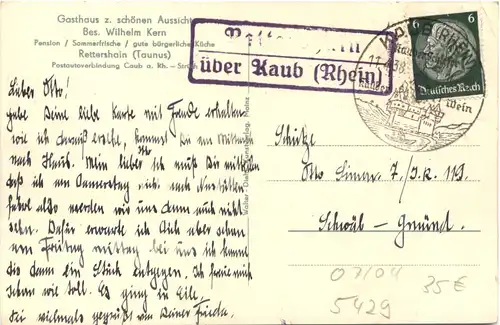 Gasthaus z. schönen Aussicht
Bes. Wilhelm Kern
Pension / Sommerfrische / gute bürgerliche Küche
Rettershain (Taunus)
Postautoverbindung Caub a. Rh. — 
über Kaub (Rhein)
KAUB (RHEIN)
Wein
6 6
Deutsches Reich
Lieber Otto!
Habe Deine liebe Karte mit Freude erhalten
wie ich daraus kommst Du am Mittwoch
nach Haus. Mein lieber ich muß Dir mitteilen
daß ich am Donnerstag nach
fahre also werden wir uns dann auch nicht
sehen. Dafür erwarte ich Dich aber schon
am Freitag mittag bei uns ich komme
Dir dann ein Stück entgegen. Ich freue mich
schon wie toll. Es ging in Eile.
Sei vielmals gegrüßt von Deiner Frieda.
Schütze
Otto 7./J.R. 119.
Schwäb-Gmünd.
07/04
35 €
5429